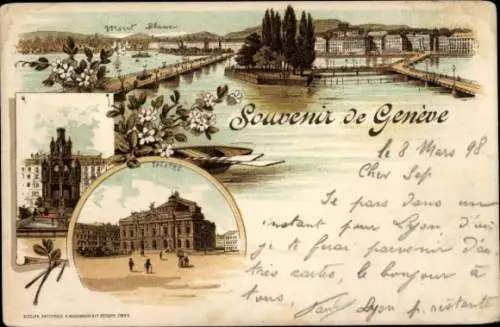 Mont Blanc
Souvenir de Genève
le 8 Mars 98
Cher
THÉATRE
Je pars dans un
instant pour Lyon d'où
je te ferai parvenir d'au
tres cartes, le bonjour à
tous,
Lyon p. restante